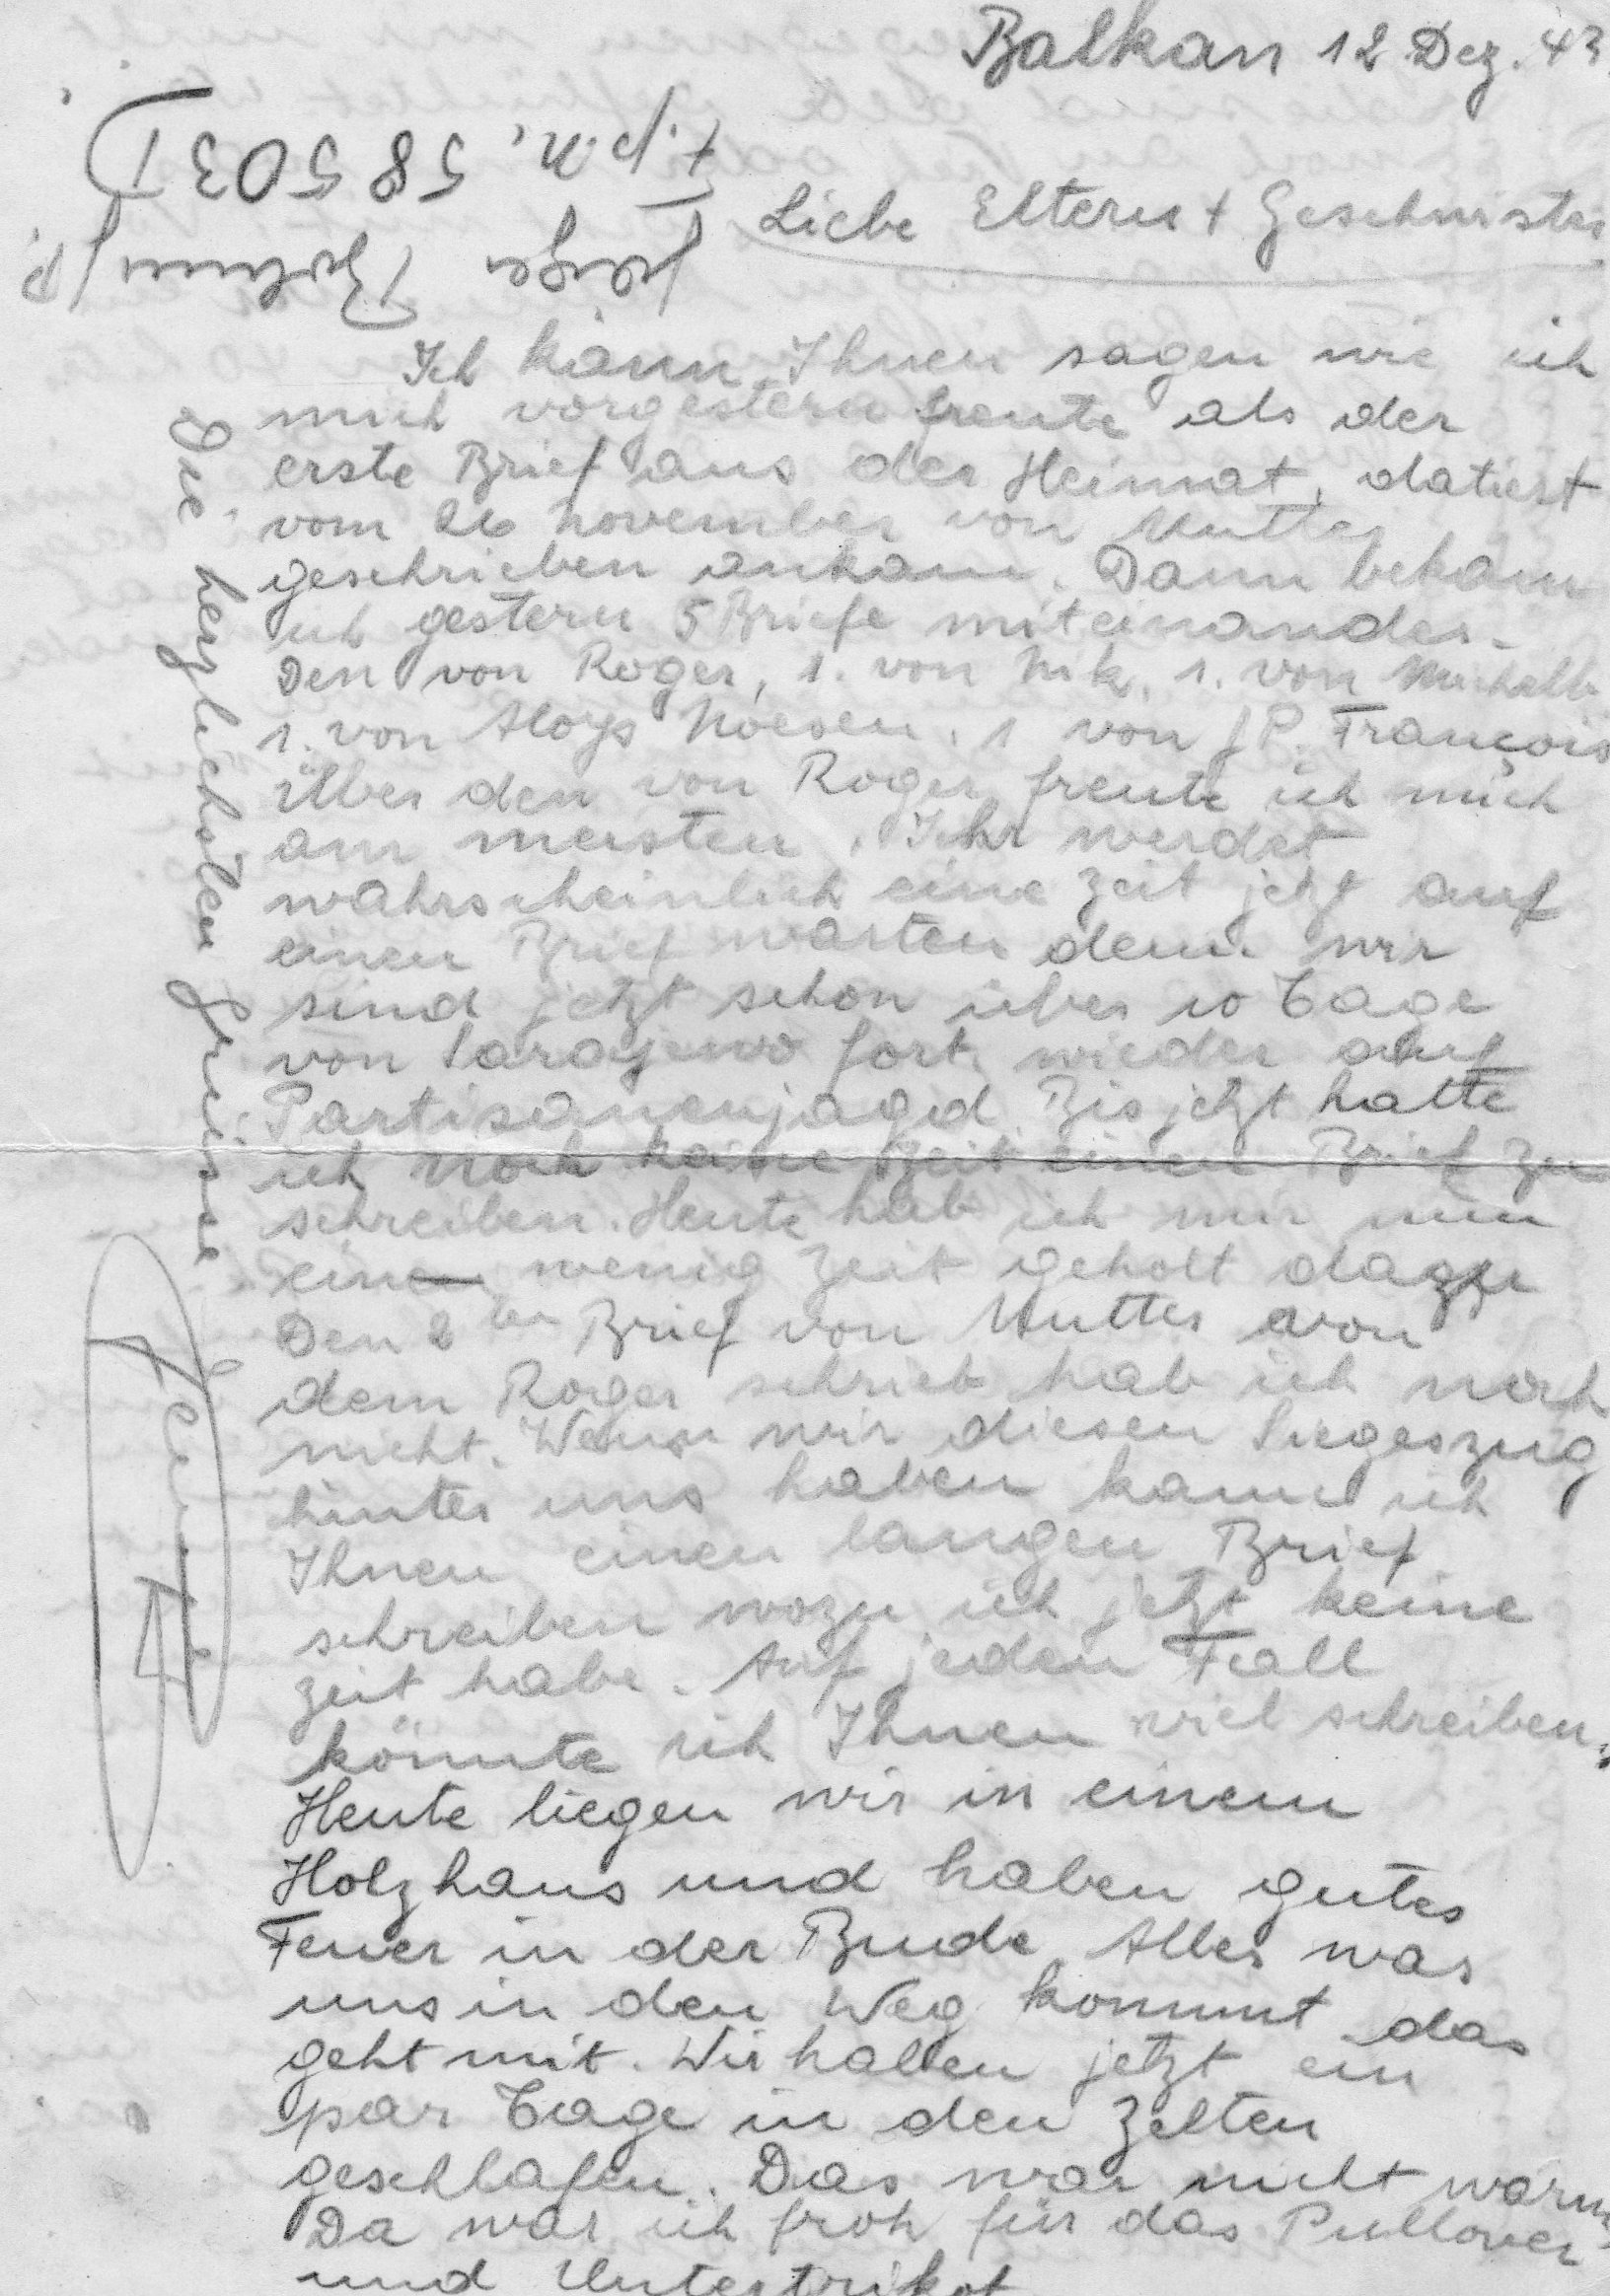 Balkan 12 Dez. 43
F.P.N. 58503D
Liebe Eltern + Geschwister
Ich kann Ihnen sagen wie ich
mich vorgestern freute als der
erste Brief aus der Heimat, datiert
vom 26 November von Mutter
geschrieben ankam. Dann bekam
ich gestern 5 Briefe miteinander.
Den von Roger, 1. von Nik, 1. von
1. von Aloys Noesen, 1 von J P. François
Über den von Roger freute ich mich
am meisten. Ihr werdet
wahrscheinlich eine Zeit jetzt auf
einen Brief warten denn wir
sind jetzt schon über 10 Tage
von Sarajewo fort wieder auf
Partisanenjagd. Bis jetzt hatte
ich noch keine Zeit einen Brief zu
schreiben. Heute hab ich mir nun
ein wenig Zeit geholt dazu
Den 2ten Brief von Mutter von
dem Roger schrieb hab ich noch
nicht. Wenn wir diesen Siegeszug
hinter uns haben kann ich
Ihnen einen langen Brief
schreiben wozu ich jetzt keine
Zeit habe. Auf jeden Fall
könnte ich Ihnen viel schreiben.
Heute liegen wir in einem
Holzhaus und haben gutes
Feuer in der Bude. Alles was
uns in den Weg kommt das
geht mit. Wir haben jetzt ein
par Tage in den Zelten
geschlafen. Das war nicht warm
Da war ich froh für das Pullover
und Untertrikot
Die herzlichsten Grüsse